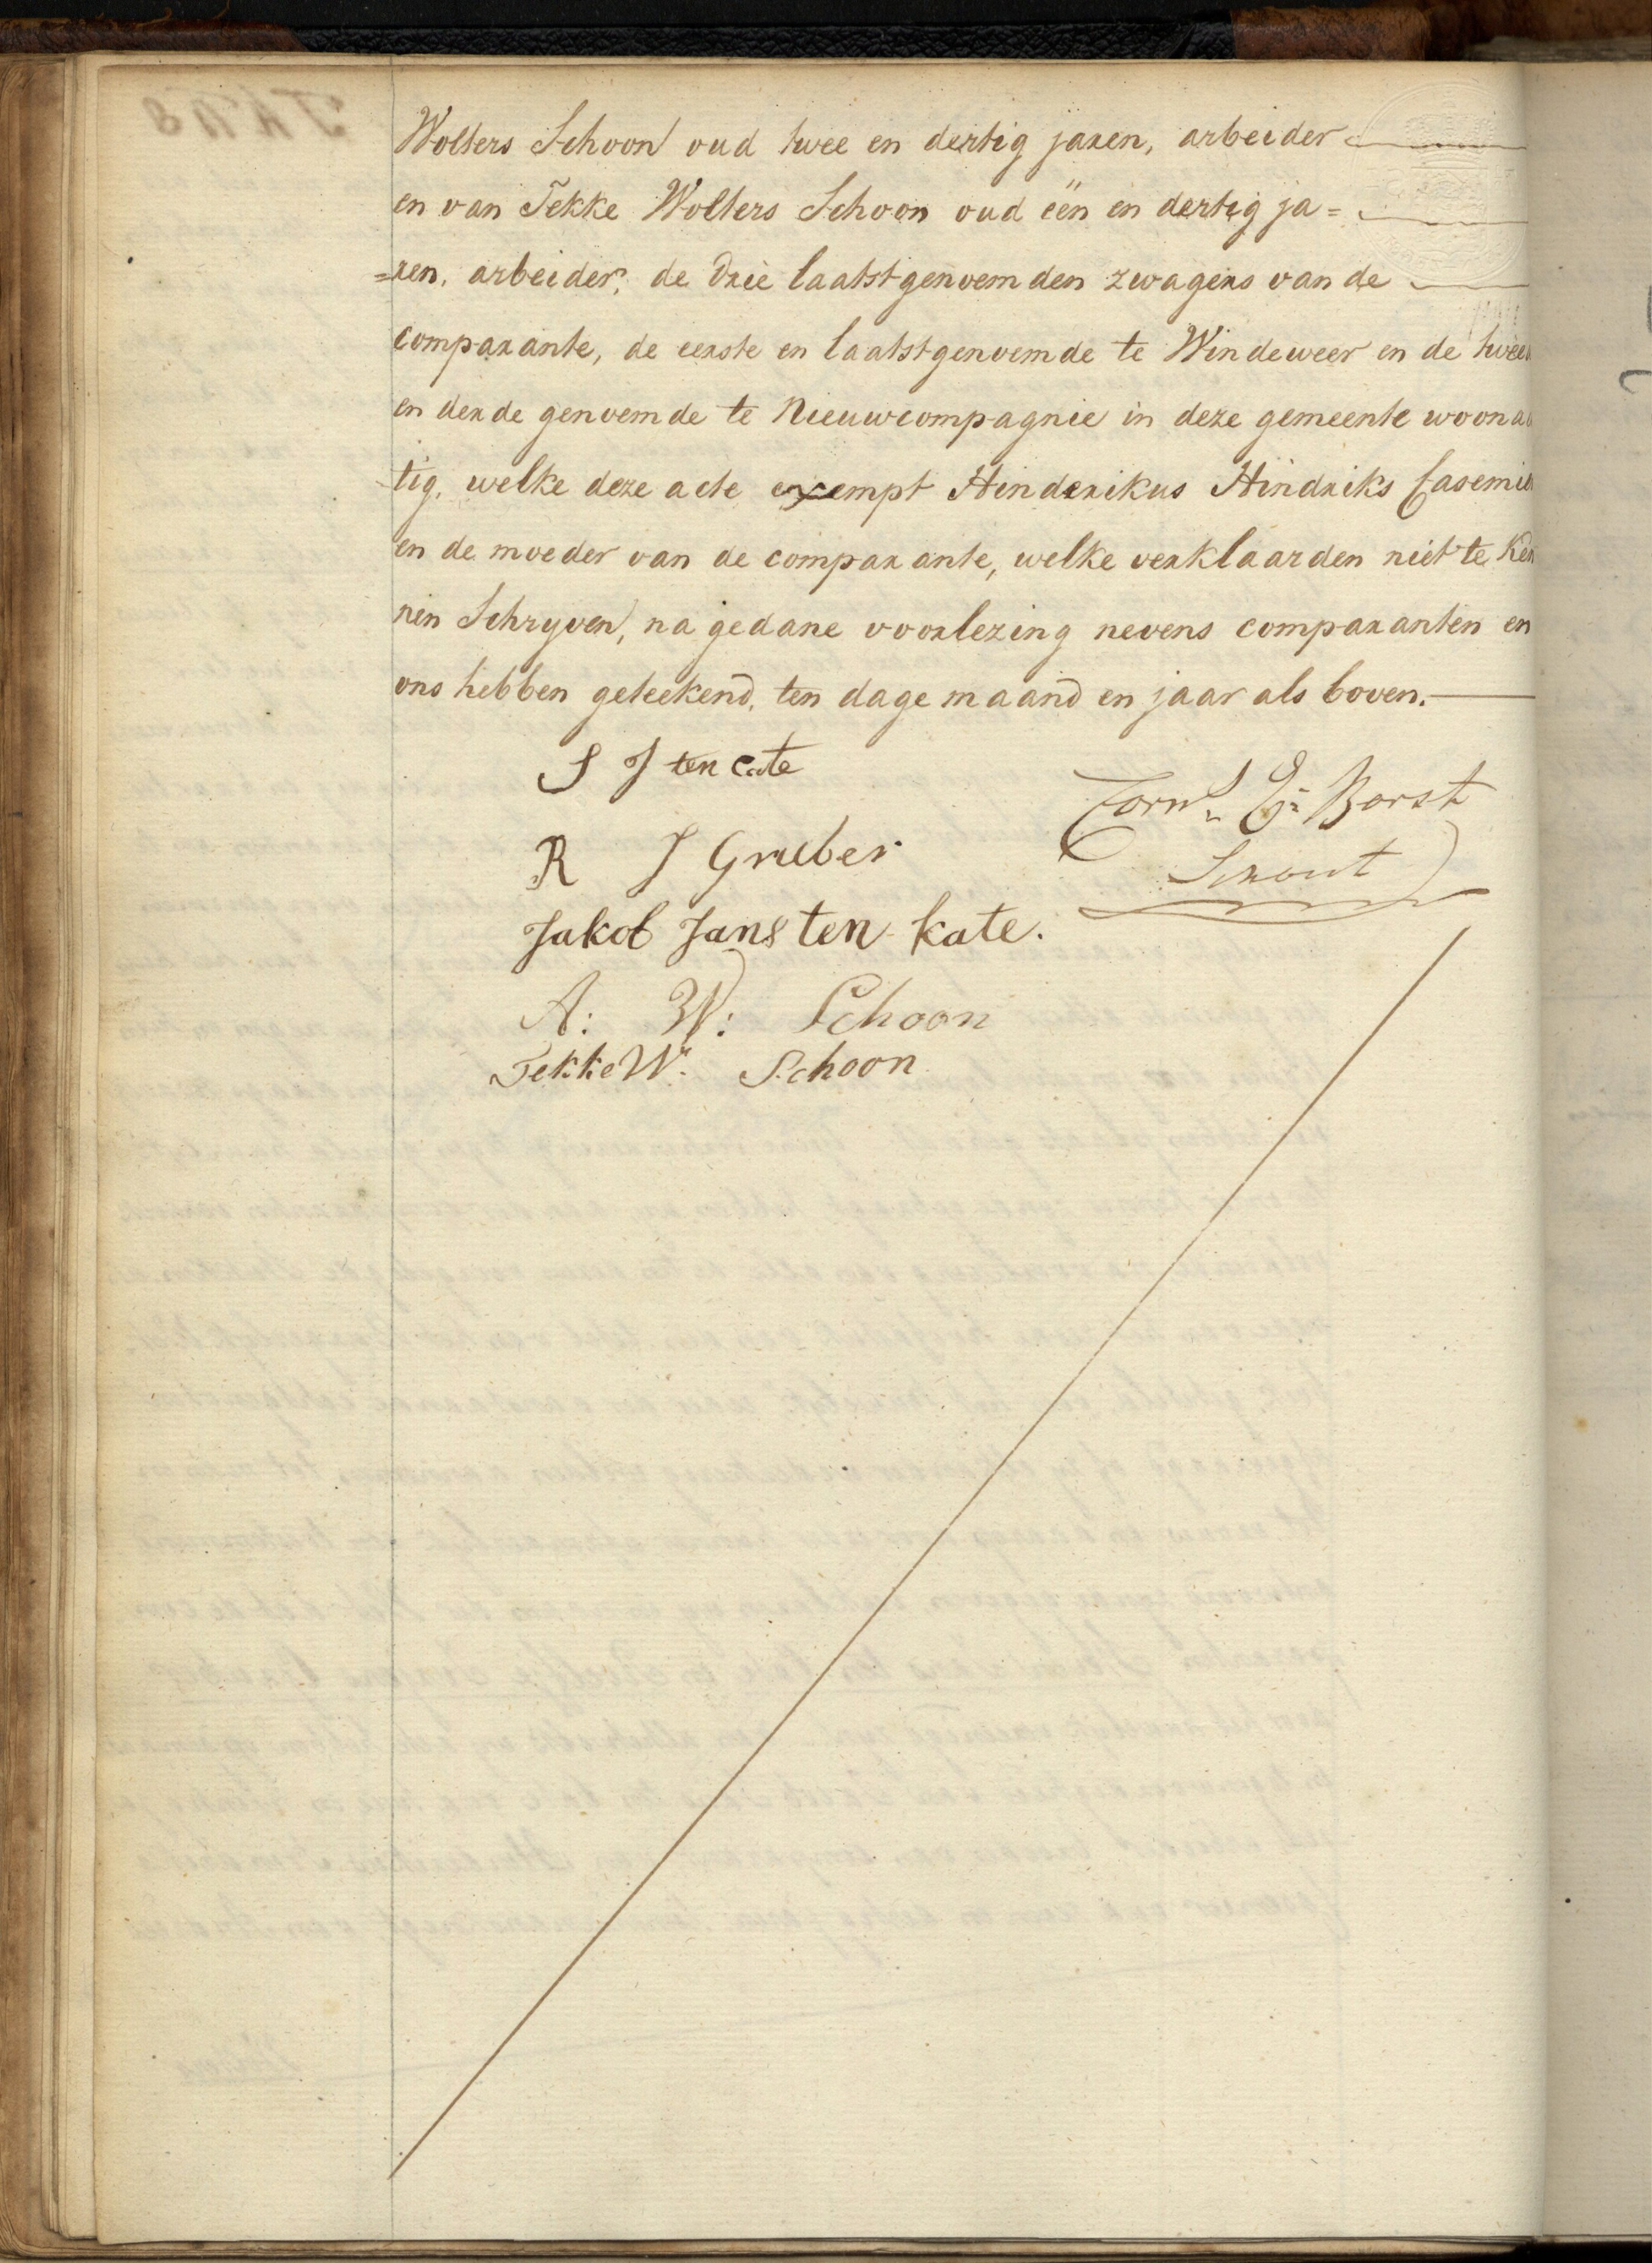 Wolters Schoon oud twee en dertig jaren, arbeider
en van Tekke Wolters Schoon oud één en dertig ja=
=ren, arbeider, de drie laatstgenoemden zwagers van de
comparante, de eerste en laatstgenoemde te Windeweer en de twee
en derde genoemde te Nieuwcompagnie in deze gemeente woona
tig, welke deze acte exempt Hinderikus Hindriks Casemie
en de moeder van de comparante, welke verklaarden niet te
nen Schryven, na gedane voorlezing nevens comparanten en
ons hebben geteekend, ten dage maand en jaar als boven.
S J ten Cate
Corn.s G: Borst
R J Gruber
Schout
Jakob Jans ten kate.
A: W: Schoon
Tekke W. Schoon